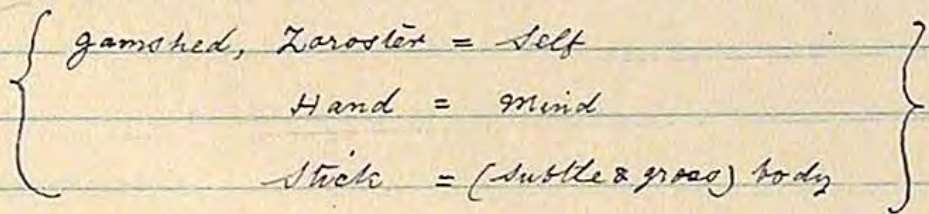 { Jamshed, Zoroster = Self }
Hand = Mind
Stick = (Subtle & gross) body